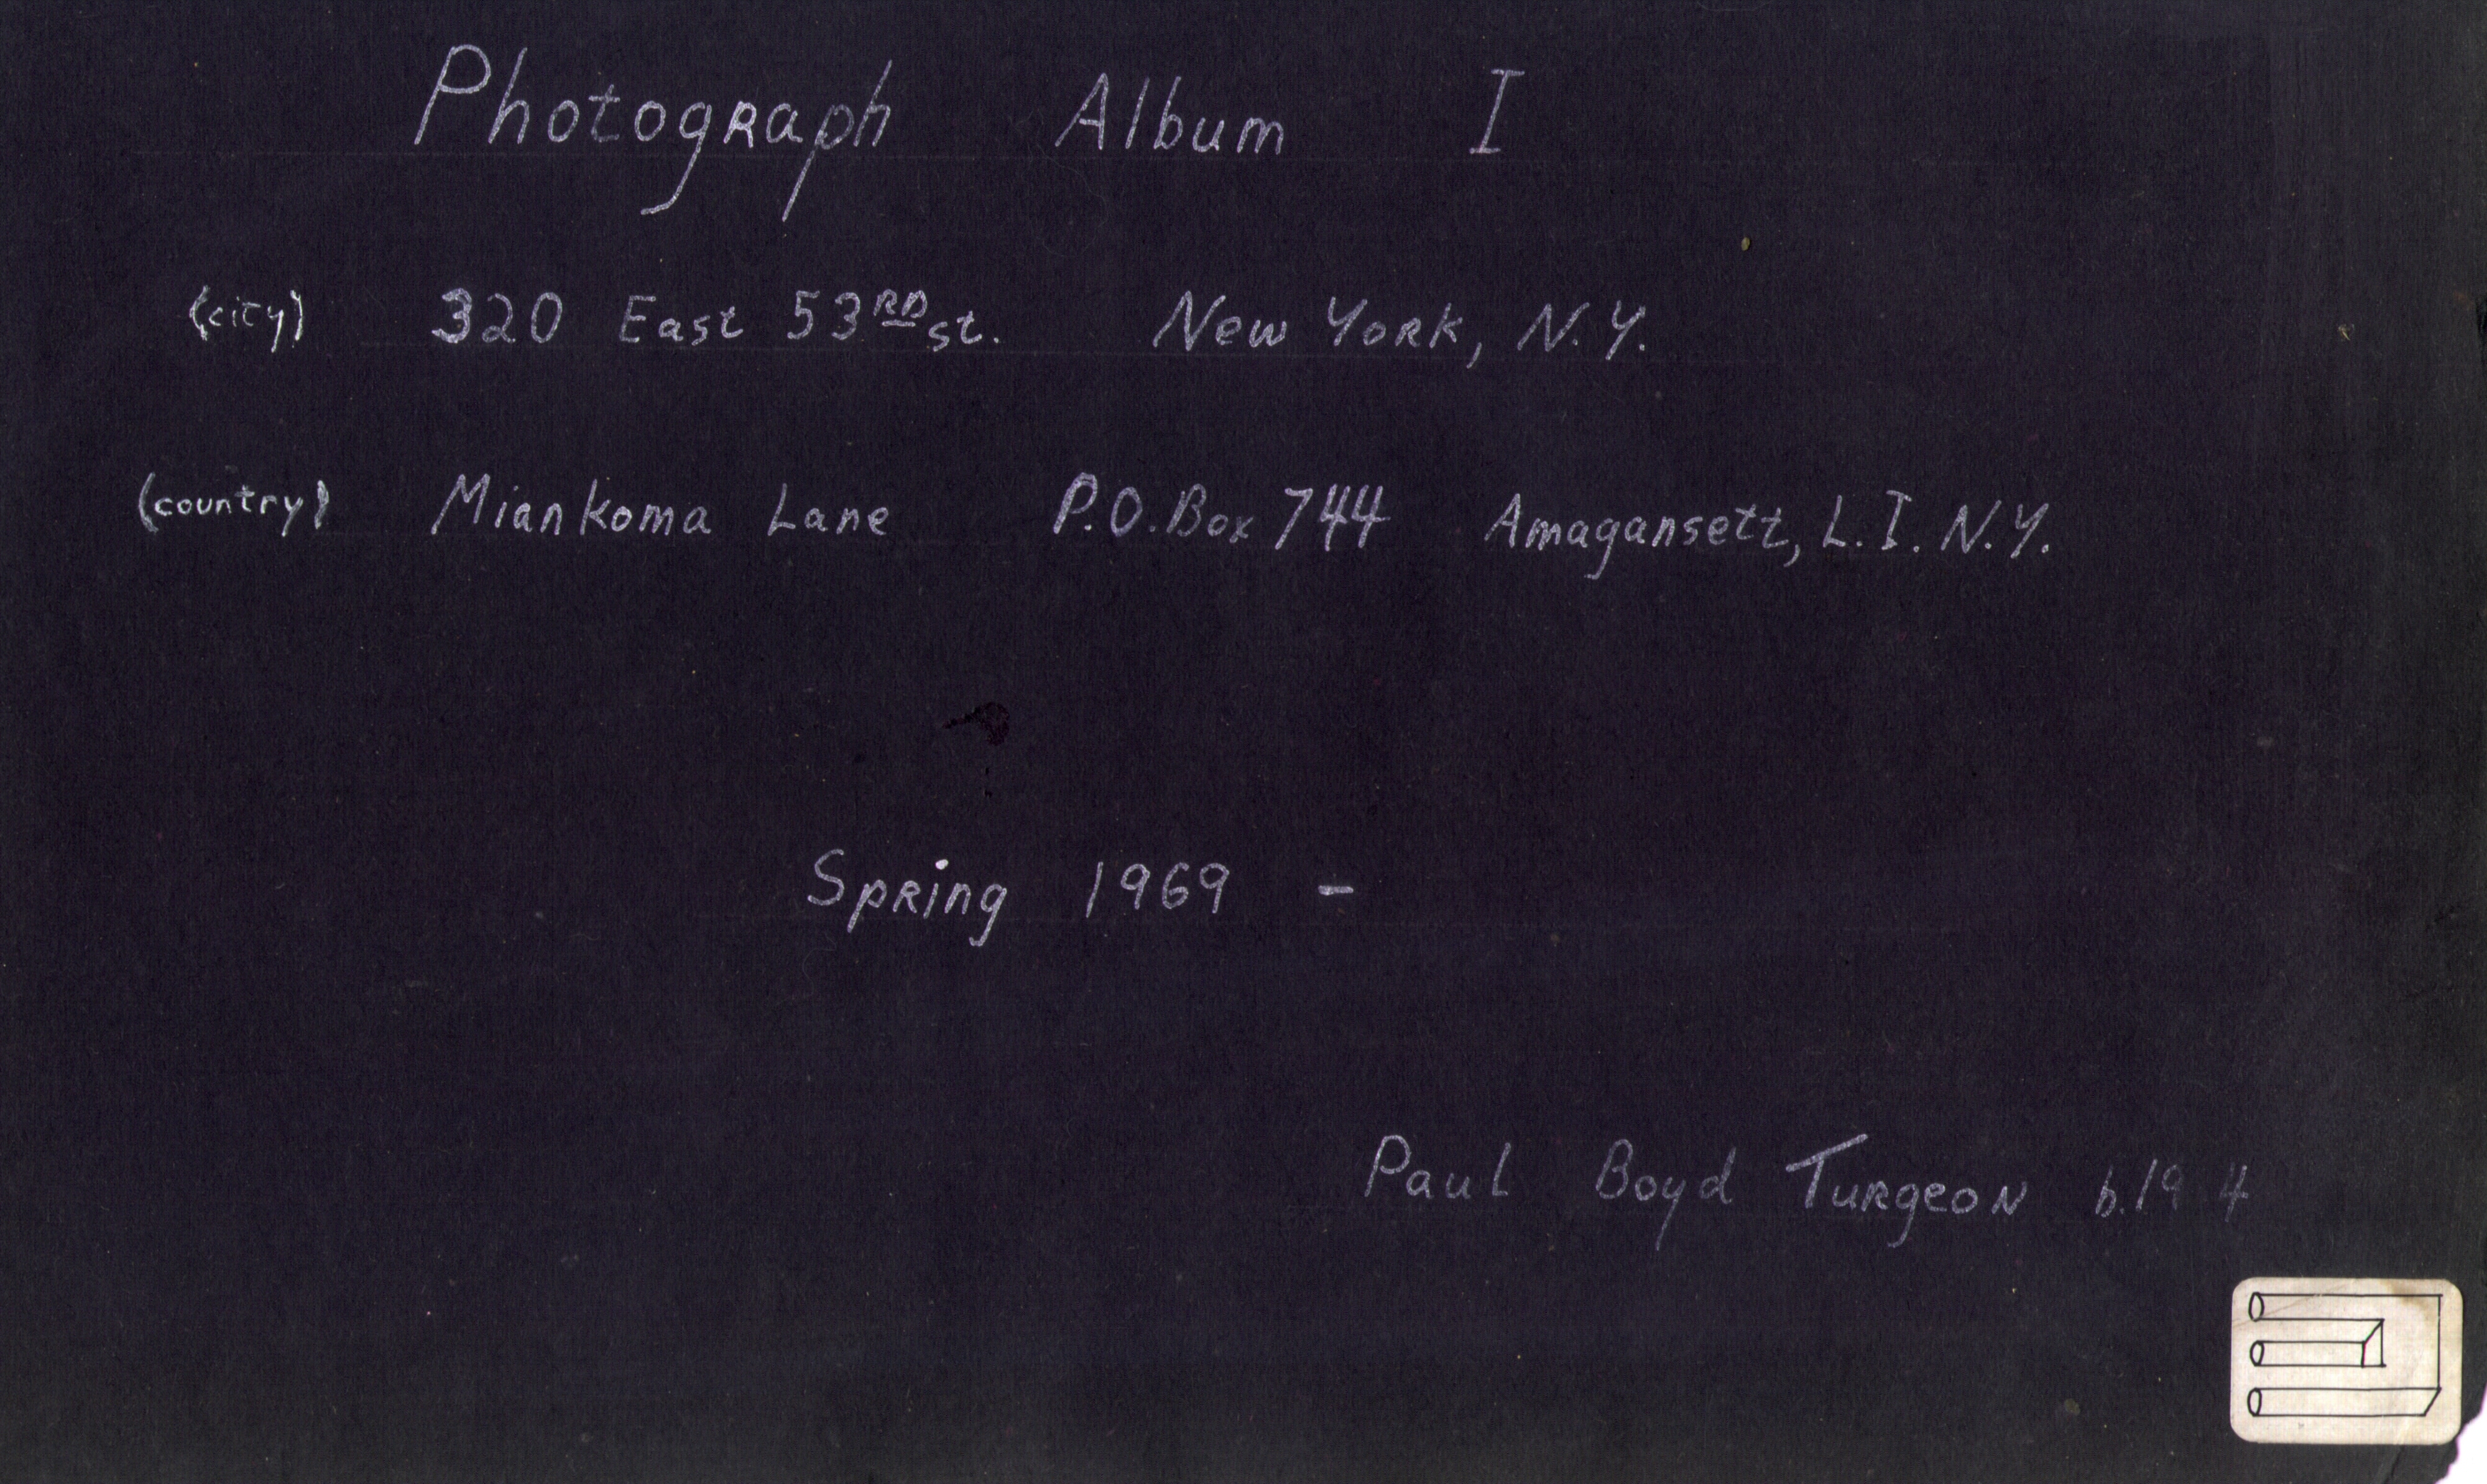 Photograph Album I
(city) 320 East 53RD st. New York, N.Y.
(country) Miankoma Lane P.O. Box 744 Amagansett, L.I. N.Y.
Spring 1969 -
Paul Boyd Turgeon b.19 4